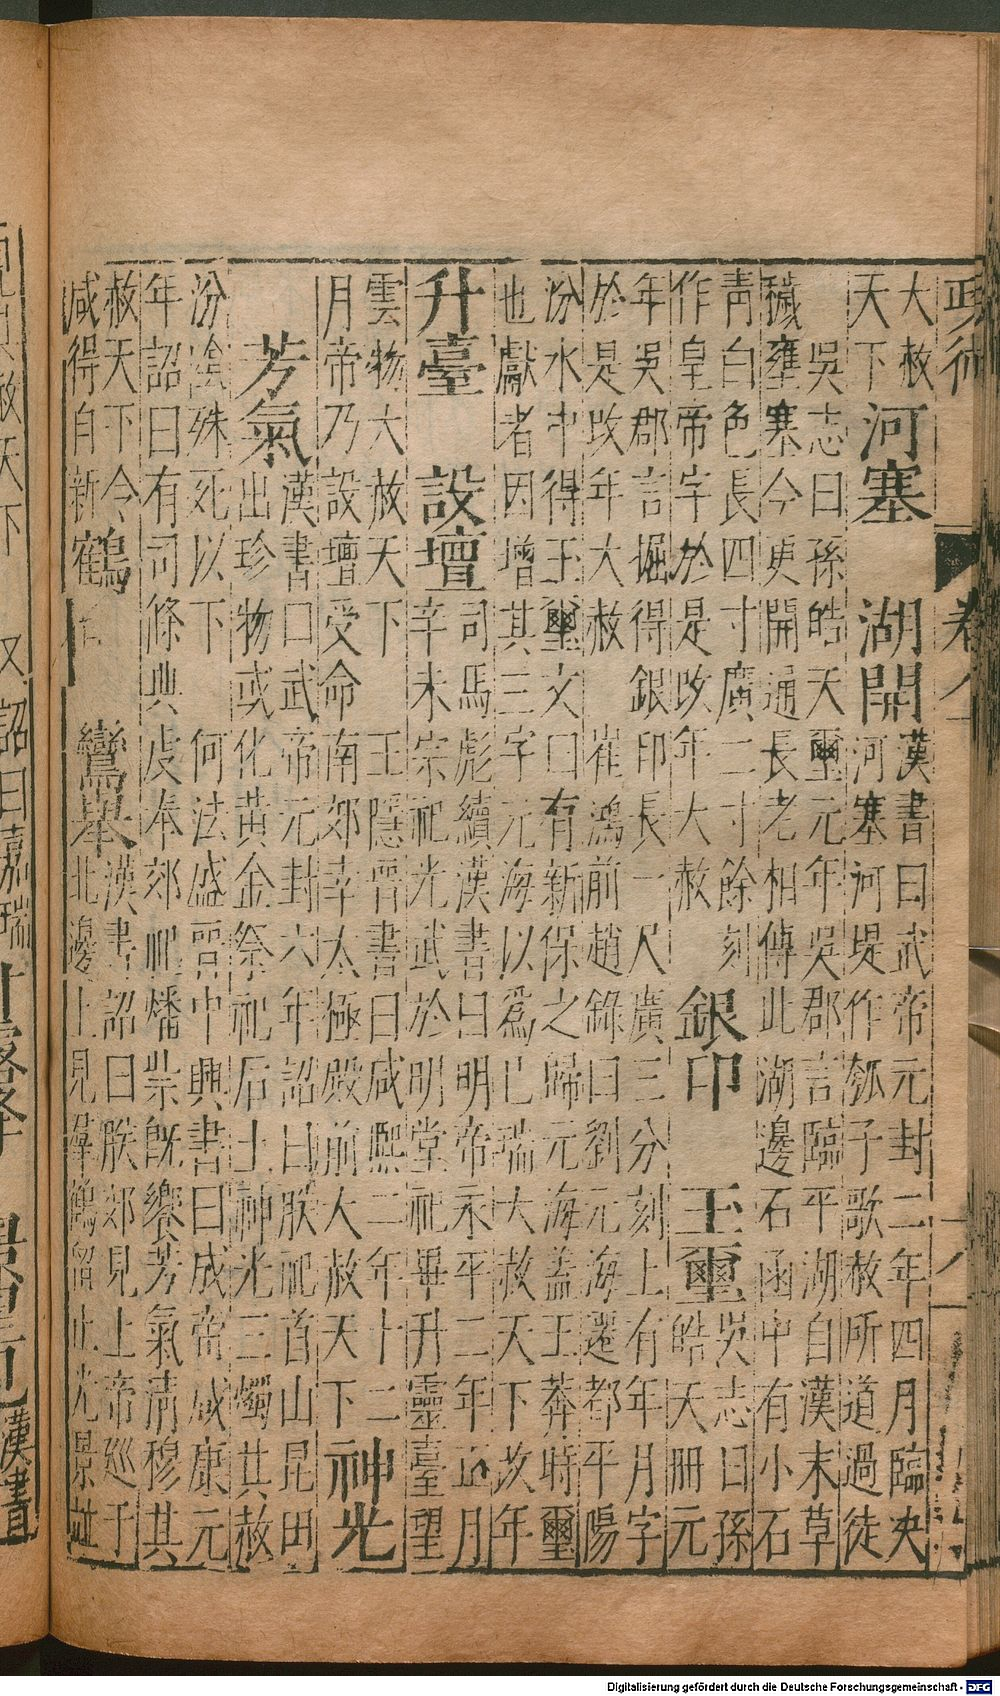 政術
卷八
大赦
天下
河塞 湖開
漢書曰武帝元封二年四月臨決
河塞河堤作瓠子歌赦所道過徒
吳志曰孫皓天璽元年吳郡言臨平湖自漢末草
穢壅塞今更開通長老相傳此湖邊石函中有小石
青白色長四寸廣二寸餘刻
作皇帝字於是改年大赦
銀印 玉璽
吳志曰孫
皓天冊元
年吳郡言掘得銀印長一尺廣三分刻上有年月字
於是改年大赦 崔鴻前趙錄曰劉元海遷都平陽
汾水中得玉璽文曰有新保之歸元海蓋王莽時璽
也獻者因增其三字元海以爲已瑞大赦天下改年
升臺 設壇
司馬彪續漢書曰明帝永平二年正月
辛未宗祀光武於明堂祀畢升靈臺望
雲物大赦天下 王隱晉書曰咸熙二年十二
月帝乃設壇受命南郊幸太極殿前大赦天下
神光
芳氣
漢書曰武帝元封六年詔曰朕祀首山昆田
出珍物或化黃金祭祀后土神光三燭其赦
汾陰殊死以下 何法盛晉中興書曰成帝咸康元
年詔曰有司條典虔奉郊祀燔柴既饗芳氣清穆其
赦天下令
咸得自新
鶴 鸞舉
漢書詔曰朕郊見上帝巡于
北邊上見羣鶴留止光景並
赦天下 又詔曰嘉瑞
漢書
Digitalisierung gefördert durch die Deutsche Forschungsgemeinschaft - DFG